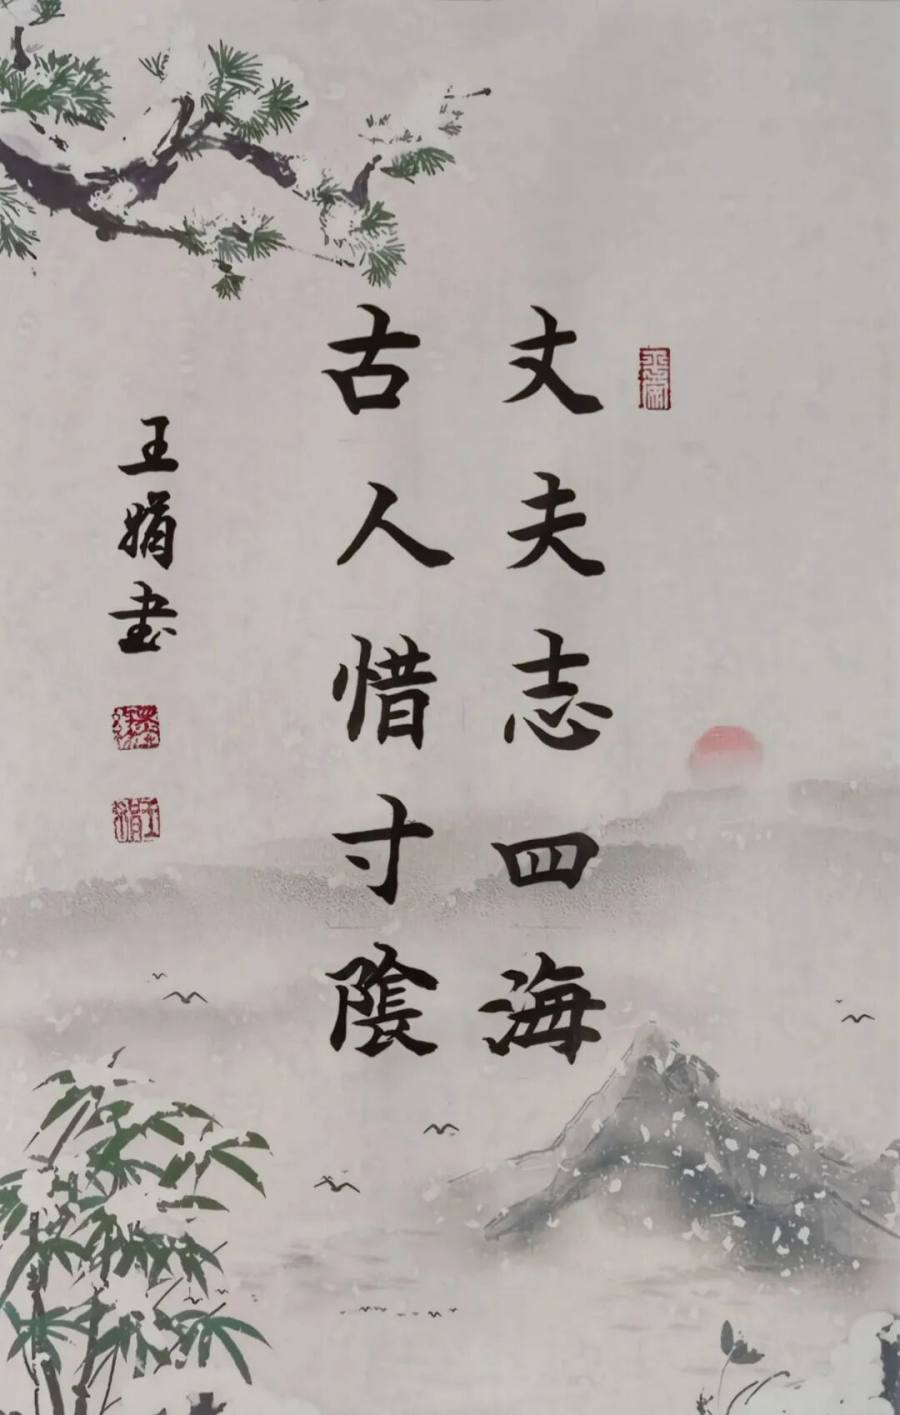 丈夫志四海
古人惜寸陰
王娟書